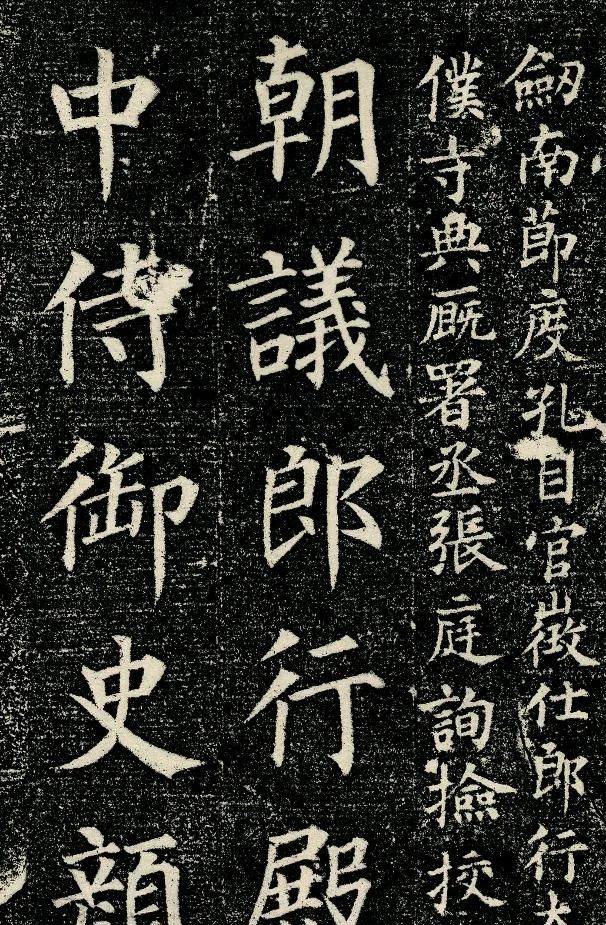 劒南節度孔目官徵仕郎行太
僕寺典厩署丞張庭詢撿挍
朝議郎行殿
中侍御史顔